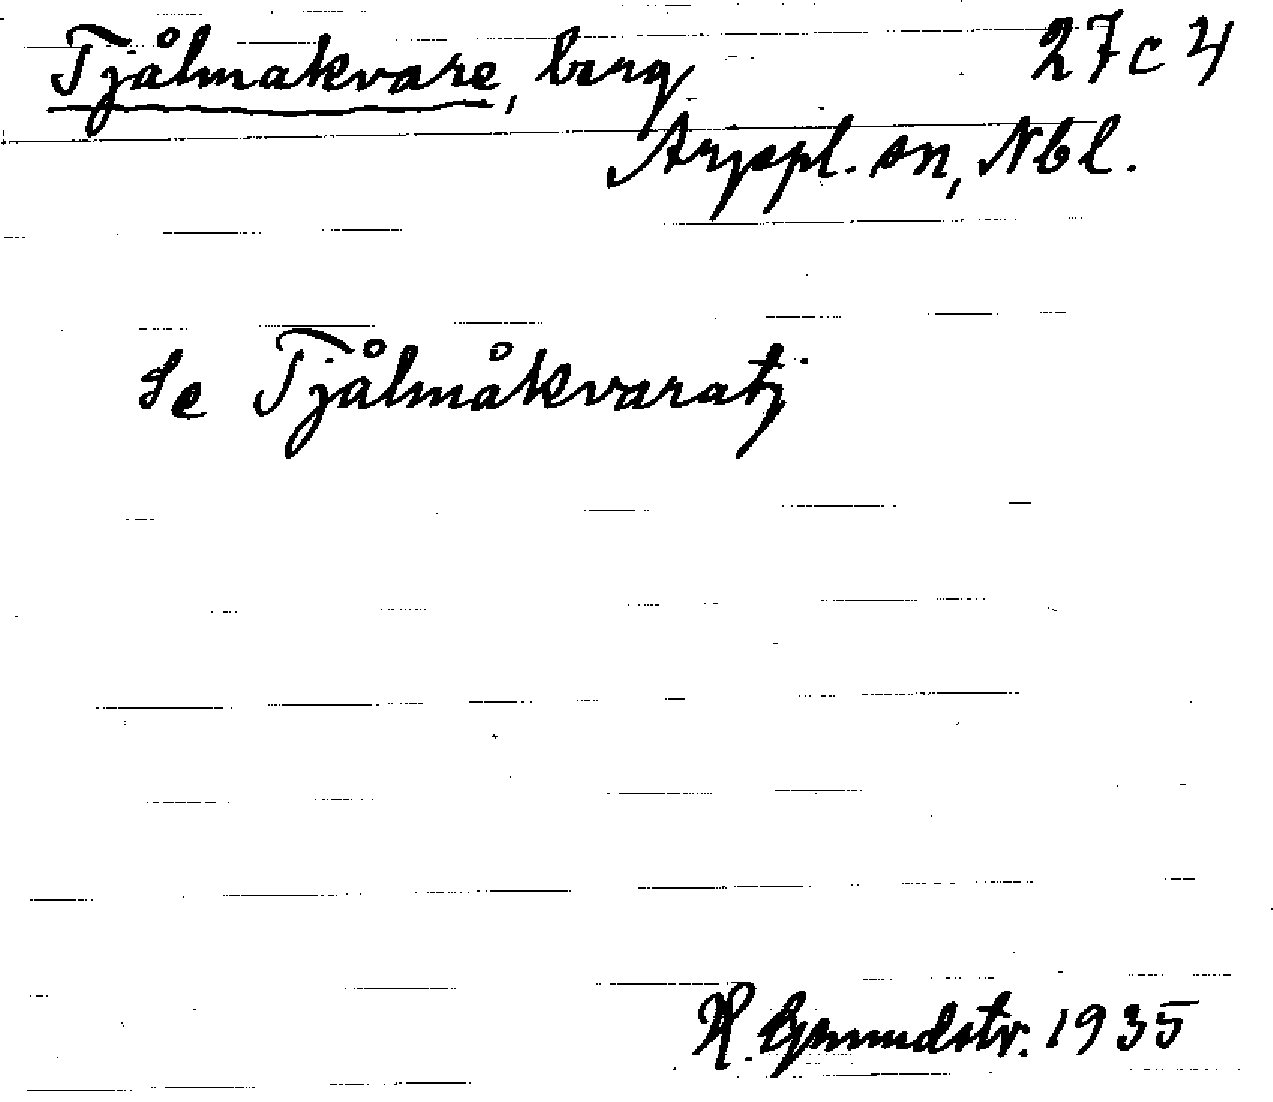 Tjålmakvare, berg 27c4
Arjepl. sn, Nbl.
Se Tjålmåkvaratj
H. Grundstr. 1935